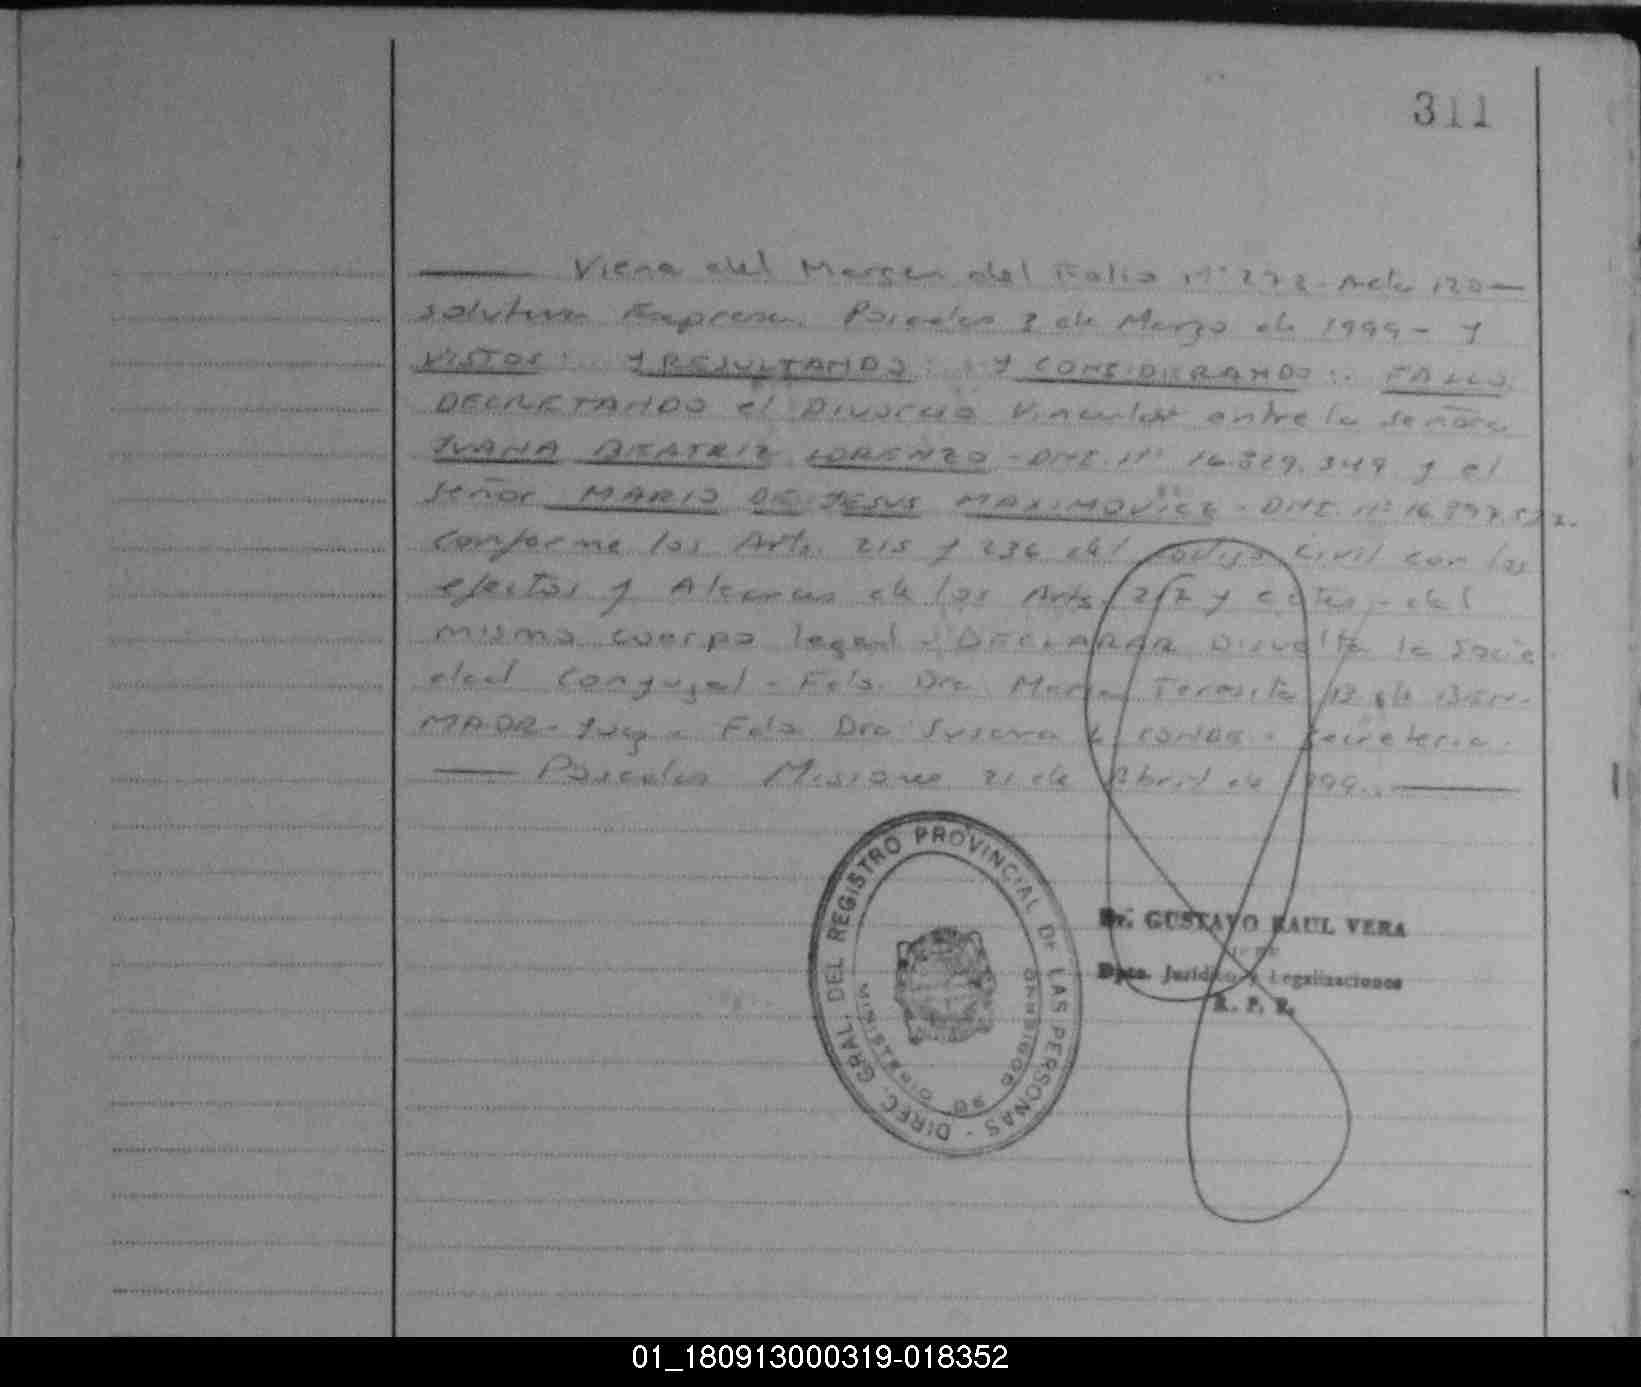 311
Viene del Margen del Folio N° 272 - Acta 120 —
solutiva Expresa. Posadas 2 de Marzo de 1999 - Y
VISTOS: Y RESULTANDO: Y CONSIDERANDO: FALLO:
DECRETANDO el Divorcio Vincular entre la señora
JUANA BEATRIZ LORENZO - DNI. N° 16.829.349 y el
señor MARIO DE JESUS MAXIMOVICZ - DNI. N° 16.897.
conforme los Arts. 215 y 236 del Codigo Civil con los
efectos y Alcances de los Arts. 217 y cctes. - del
mismo cuerpo legal - DECLARAR Disuelta la Socie
dad Conyugal - Fdo. Dra Maria Teresita B de BEN-
MAOR - Juez - Fdo Dra Susana L CONDE - Secretaria.
— Posadas Misiones 21 de Abril de 1999. —
DIREC. GRAL. DEL REGISTRO PROVINCIAL DE LAS PERSONAS -
MINISTERIO DE GOBIERNO
Dr. GUSTAVO RAUL VERA
JEFE
Dpto. Jurídico y Legalizaciones
R. P. P.
01_180913000319-018352